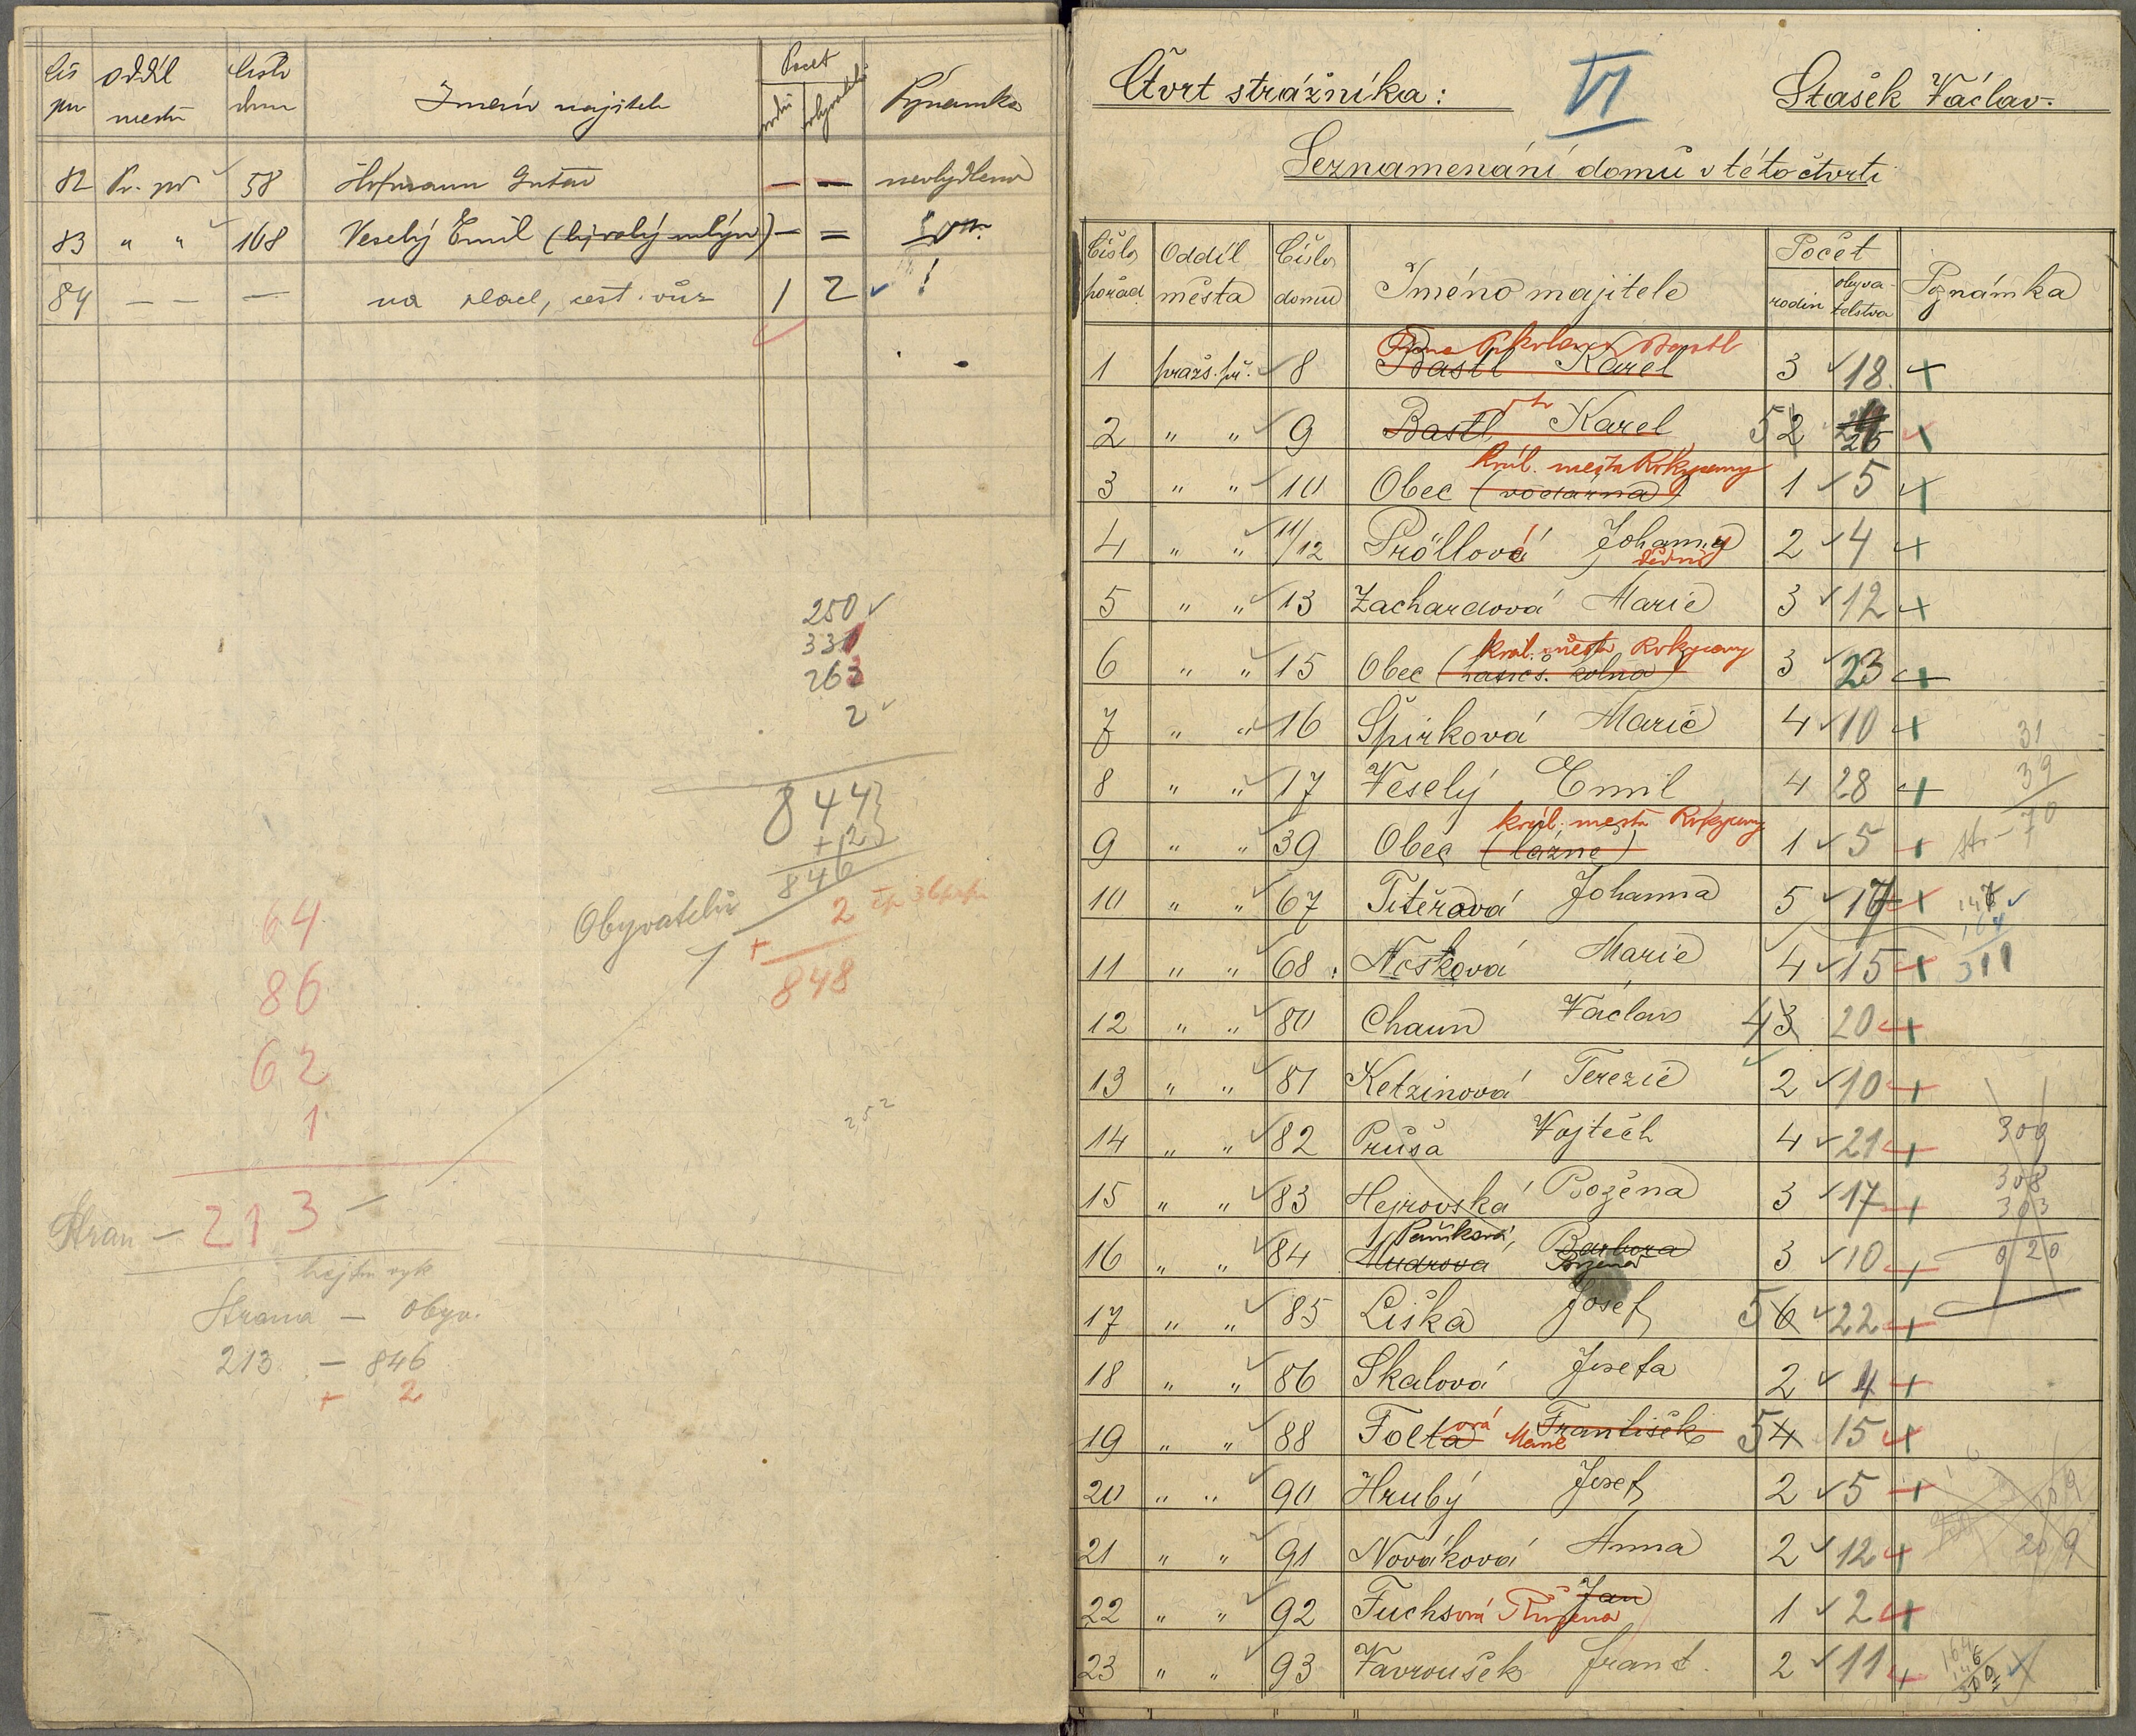 Čís oddíl číslo Jméno majitele Počet Poznámka
města domu
82 Pr. př 58 Hofmann Gustav — — neobydleno
83 " " 168 Veselý Emil (bývalý mlýn) — =
84 — — — na place, cest. vůz 1 2 !
250
331
263
2
844
+ 2
846
Obyvatelů
+ 2
848
64
86
62
1
Stran — 213 —
Strana — obyv.
213 — 846
+ 2
Čtvrt strážníka: VI Stašek Václav.
Seznamenání domů v této čtvrti
Číslo pořad. Oddíl města Číslo domu Jméno majitele Počet rodin obyvatelstva Poznámka
1 praž. př. 8 Bastl Karel 3 18
2 " " 9 Bastl Karel 5 2 26
král. města Rokycany
3 " " 10 Obec (vodárna) 1 5
4 " " 11/12 Pröllová Johanna 2 4
dědici
5 " " 13 Zachardová Marie 3 12
král. města Rokycany
6 " " 15 Obec (hasičs. kolna) 3 23
7 " " 16 Špirková Marie 4 10 31
8 " " 17 Veselý Emil 4 28 39
král. města Rokycany 70
9 " " 39 Obec (lázně) 1 5
10 " " 67 Titěrová Johanna 5 17
11 " " 68 Nosková Marie 4 15 311
12 " " 80 Chaun Václav 4 3 20
13 " " 81 Ketzinová Terezie 2 10
14 " " 82 Průša Vojtěch 4 21 309
15 " " 83 Hejrovská Božena 3 17 308
303
16 " " 84 Mudrová Barbora 3 10 920
17 " " 85 Liška Josef 5 6 22
18 " " 86 Skalová Josefa 2 4
19 " " 88 Foltaová Marie František 5 4 15
20 " " 90 Hrubý Josef 2 5
21 " " 91 Nováková Anna 2 12 209
22 " " 92 Fuchsová Růžena Jan 1 2
23 " " 93 Vavroušek Frant. 2 11